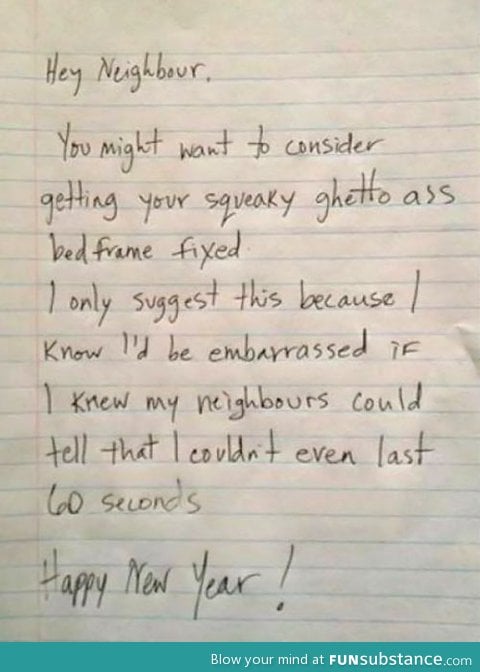 Hey Neighbour,
You might want to consider
getting your squeaky ghetto ass
bedframe fixed.
I only suggest this because I
know I'd be embarrassed if
I knew my neighbours could
tell that I couldn't even last
60 seconds
Happy New Year!
Blow your mind at FUNsubstance.com